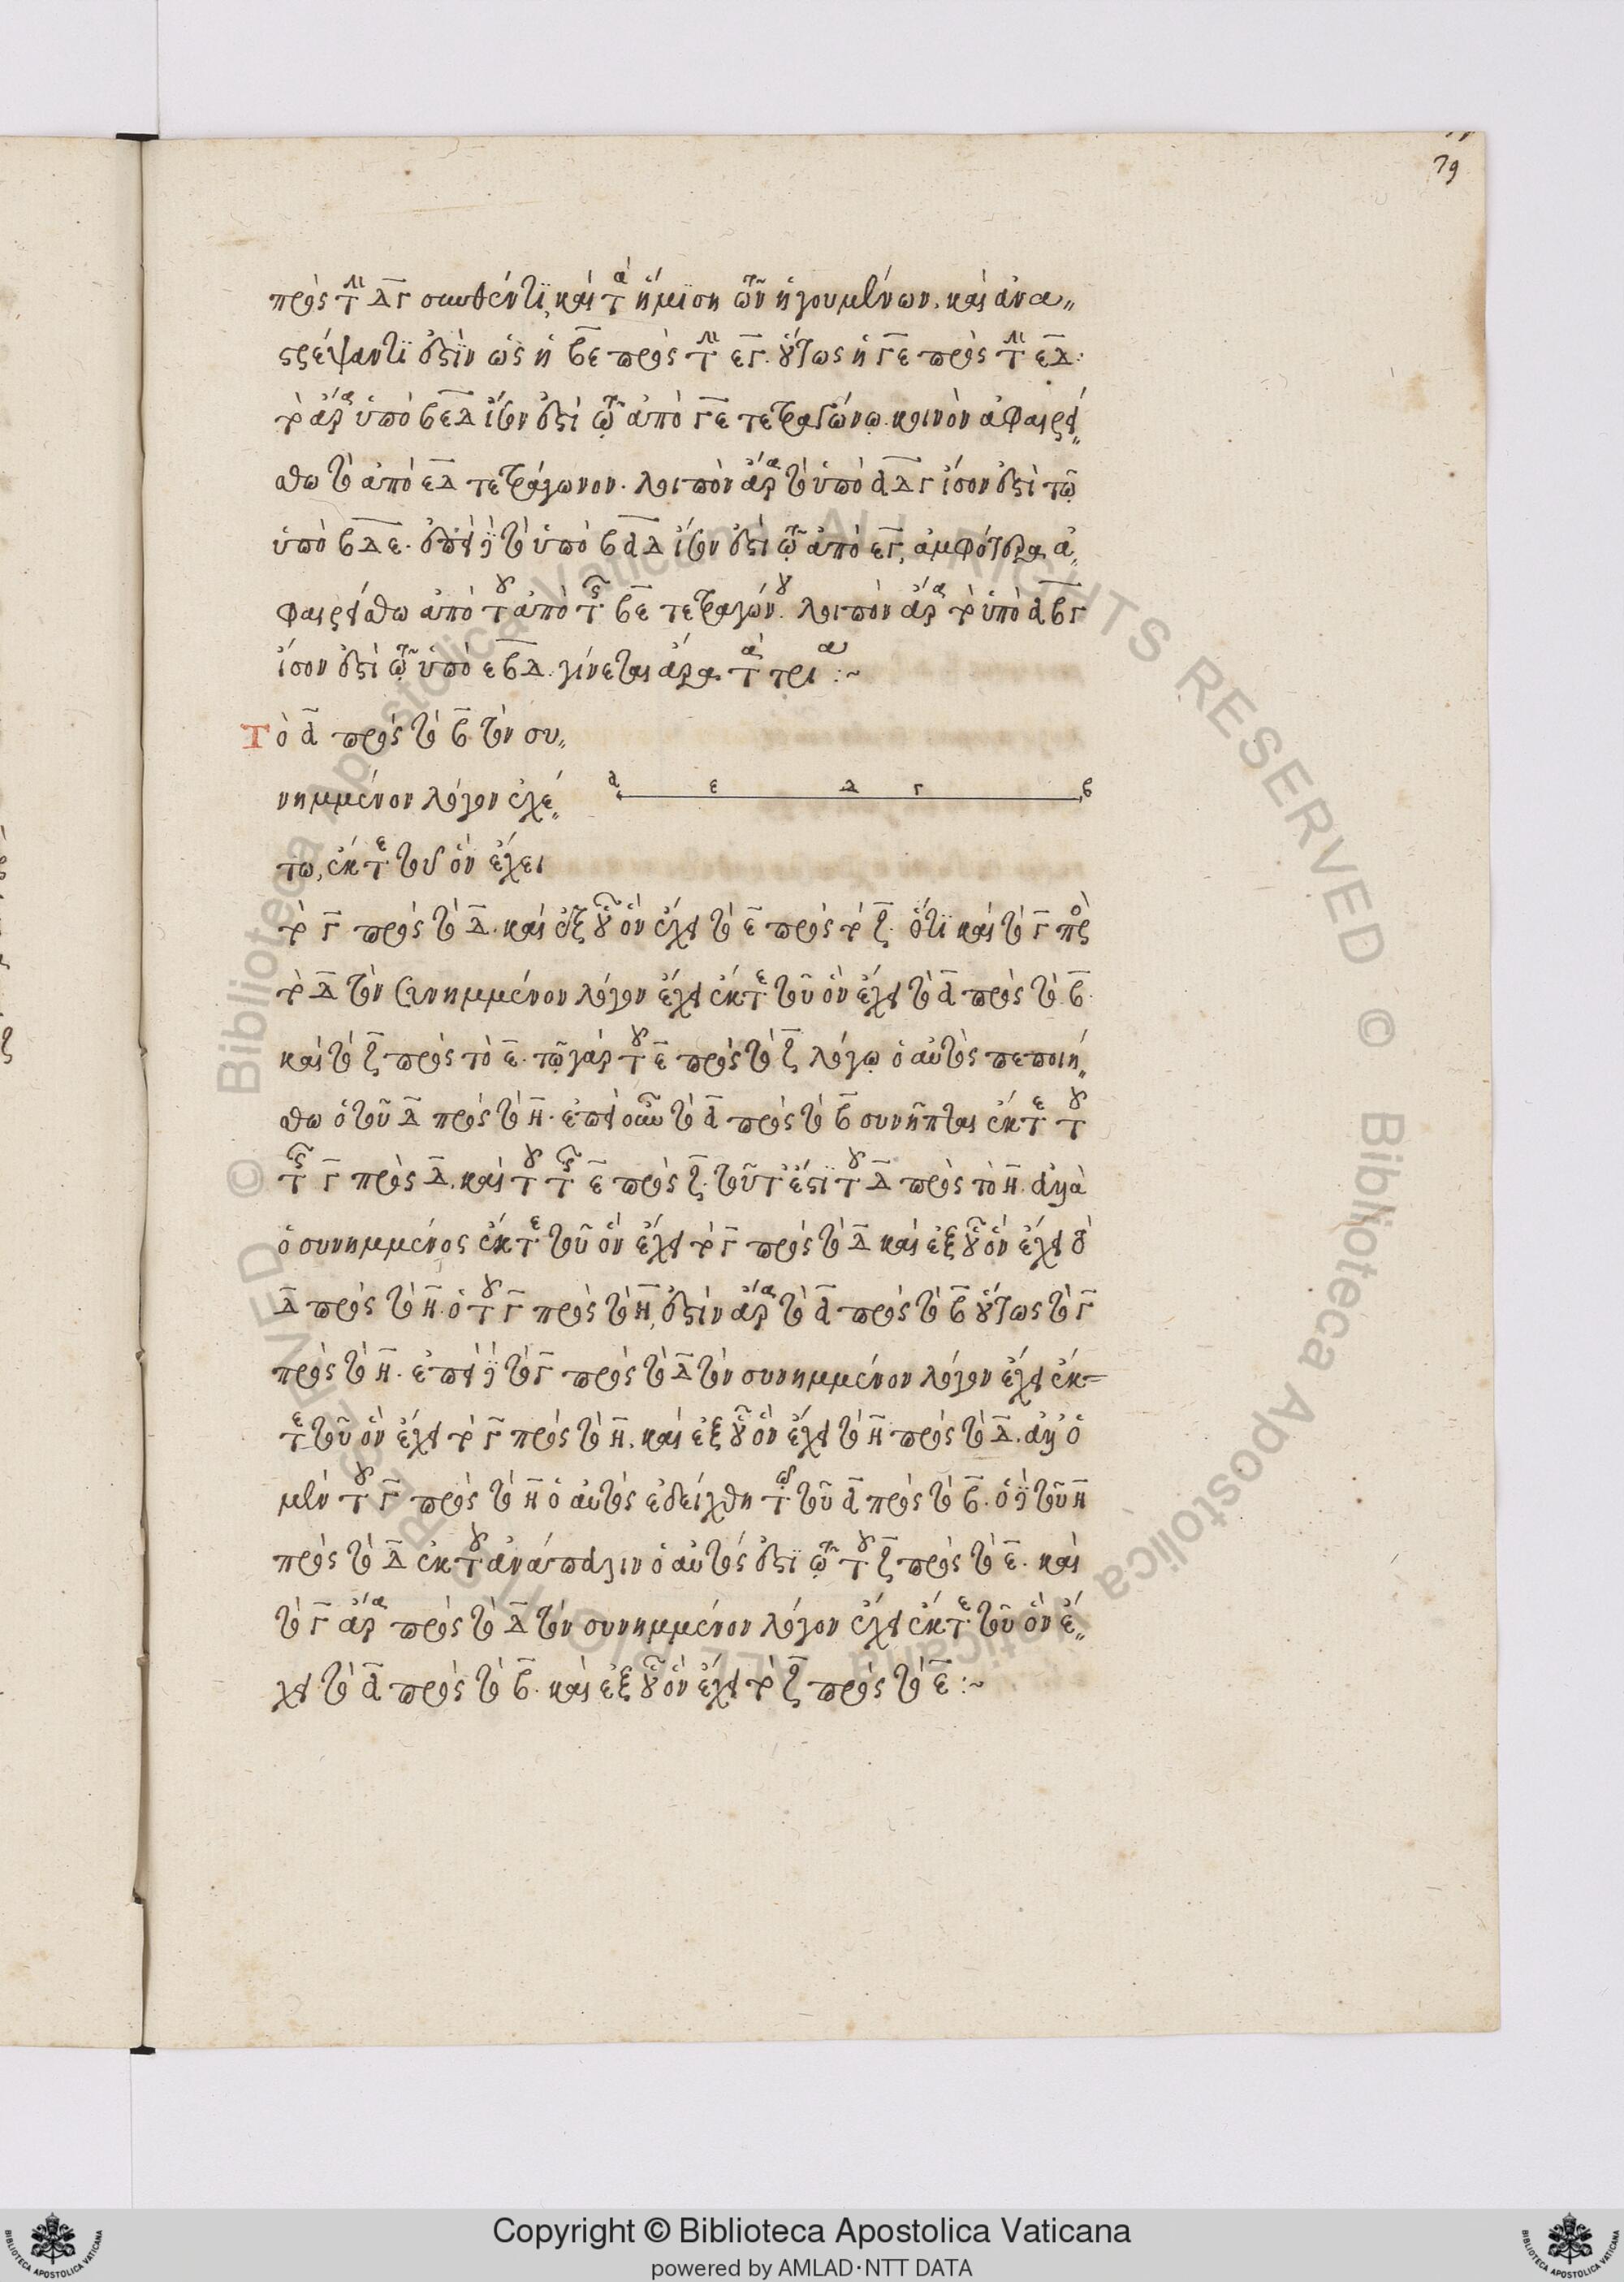 79
πρὸς τὴν ΔΓ συνθέντι, καὶ τὰ ἡμίση τῶν ἡγουμένων. καὶ ἀνα„
στρέψαντί ἐστὶν ὡς ἡ ΒΕ πρὸς τὴν ΕΓ. οὕτως ἡ ΓΕ πρὸς τὴν ΕΔ.
τὸ ἄρα ὑπὸ ΒΕΔ ἴσον ἐστὶ τῷ ἀπὸ ΓΕ τετραγώνῳ. κοινὸν ἀφαιρεί„
σθω τὸ ἀπὸ ΕΔ τετράγωνον. λοιπὸν ἄρα τὸ ὑπὸ ΑΔΓ ἴσον ἐστὶ τῷ
ὑπὸ ΒΔΕ. ἐπεὶ δὲ τὸ ὑπὸ ΒΑΔ ἴσον ἐστὶ τῷ ἀπὸ ΕΓ, ἀμφότερα ἀ„
φαιρείσθω ἀπὸ τοῦ ἀπὸ τῆς ΒΕ τετραγώνου. λοιπὸν ἄρα τὸ ὑπὸ ΑΒΓ
ἴσον ἐστὶ τῷ ὑπὸ ΕΒΔ. γίνεται ἄρα τὰ τρία :~
Τὸ Α πρὸς τὸ Β τὸν συ„
νημμένον λόγον ἐχέ„
τω, ἔκ τε τοῦ ὃν ἔχει
Α Ε Δ Γ Β
τὸ Γ πρὸς τὸ Δ. καὶ ἐξ οὗ ὃν ἔχει τὸ Ε πρὸς τὸ Ζ. ὅτι καὶ τὸ Γ πρὸς
τὸ Δ τὸν συνημμένον λόγον ἔχει ἔκ τε τοῦ ὃν ἔχει τὸ Α πρὸς τὸ Β.
καὶ τὸ Ζ πρὸς τὸ Ε. τῷ γὰρ τοῦ Ε πρὸς τὸ Ζ λόγῳ ὁ αὐτὸς πεποιή„
σθω ὁ τοῦ Δ πρὸς τὸ Η. ἐπεὶ οὖν τὸ Α πρὸς τὸ Β συνῆπται ἔκ τε τοῦ
τῆς Γ πρὸς Δ. καὶ τοῦ τῆς Ε πρὸς Ζ. τουτέστι τοῦ Δ πρὸς τὸ Η. ἀλλὰ
ὁ συνημμένος ἔκ τε τοῦ ὃν ἔχει τὸ Γ πρὸς τὸ Δ καὶ ἐξ οὗ ὃν ἔχει τὸ
Δ πρὸς τὸ Η. ὁ τοῦ Γ πρὸς τὸ Η, ἐστὶν ἄρα τὸ Α πρὸς τὸ Β οὕτως τὸ Γ
πρὸς τὸ Η. ἐπεὶ δὲ τὸ Γ πρὸς τὸ Δ τὸν συνημμένον λόγον ἔχει ἔκ=
τε τοῦ ὃν ἔχει τὸ Γ πρὸς τὸ Η. καὶ ἐξ οὗ ὃν ἔχει τὸ Η πρὸς τὸ Δ. ἀλλ' ὁ
μὲν τοῦ Γ πρὸς τὸ Η ὁ αὐτὸς ἐδείχθη τῷ τοῦ Α πρὸς τὸ Β. ὁ δὲ τοῦ Η
πρὸς τὸ Δ ἐκ τοῦ ἀνάπαλιν ὁ αὐτός ἐστι τῷ τοῦ Ζ πρὸς τὸ Ε. καὶ
τὸ Γ ἄρα πρὸς τὸ Δ τὸν συνημμένον λόγον ἔχει ἔκ τε τοῦ ὃν ἔ„
χει τὸ Α πρὸς τὸ Β. καὶ ἐξ οὗ ὃν ἔχει τὸ Ζ πρὸς τὸ Ε :~
© Biblioteca Apostolica Vaticana ALL RIGHTS RESERVED
Copyright © Biblioteca Apostolica Vaticana
powered by AMLAD·NTT DATA
BIBLIOTECA APOSTOLICA VATICANA
BIBLIOTECA APOSTOLICA VATICANA